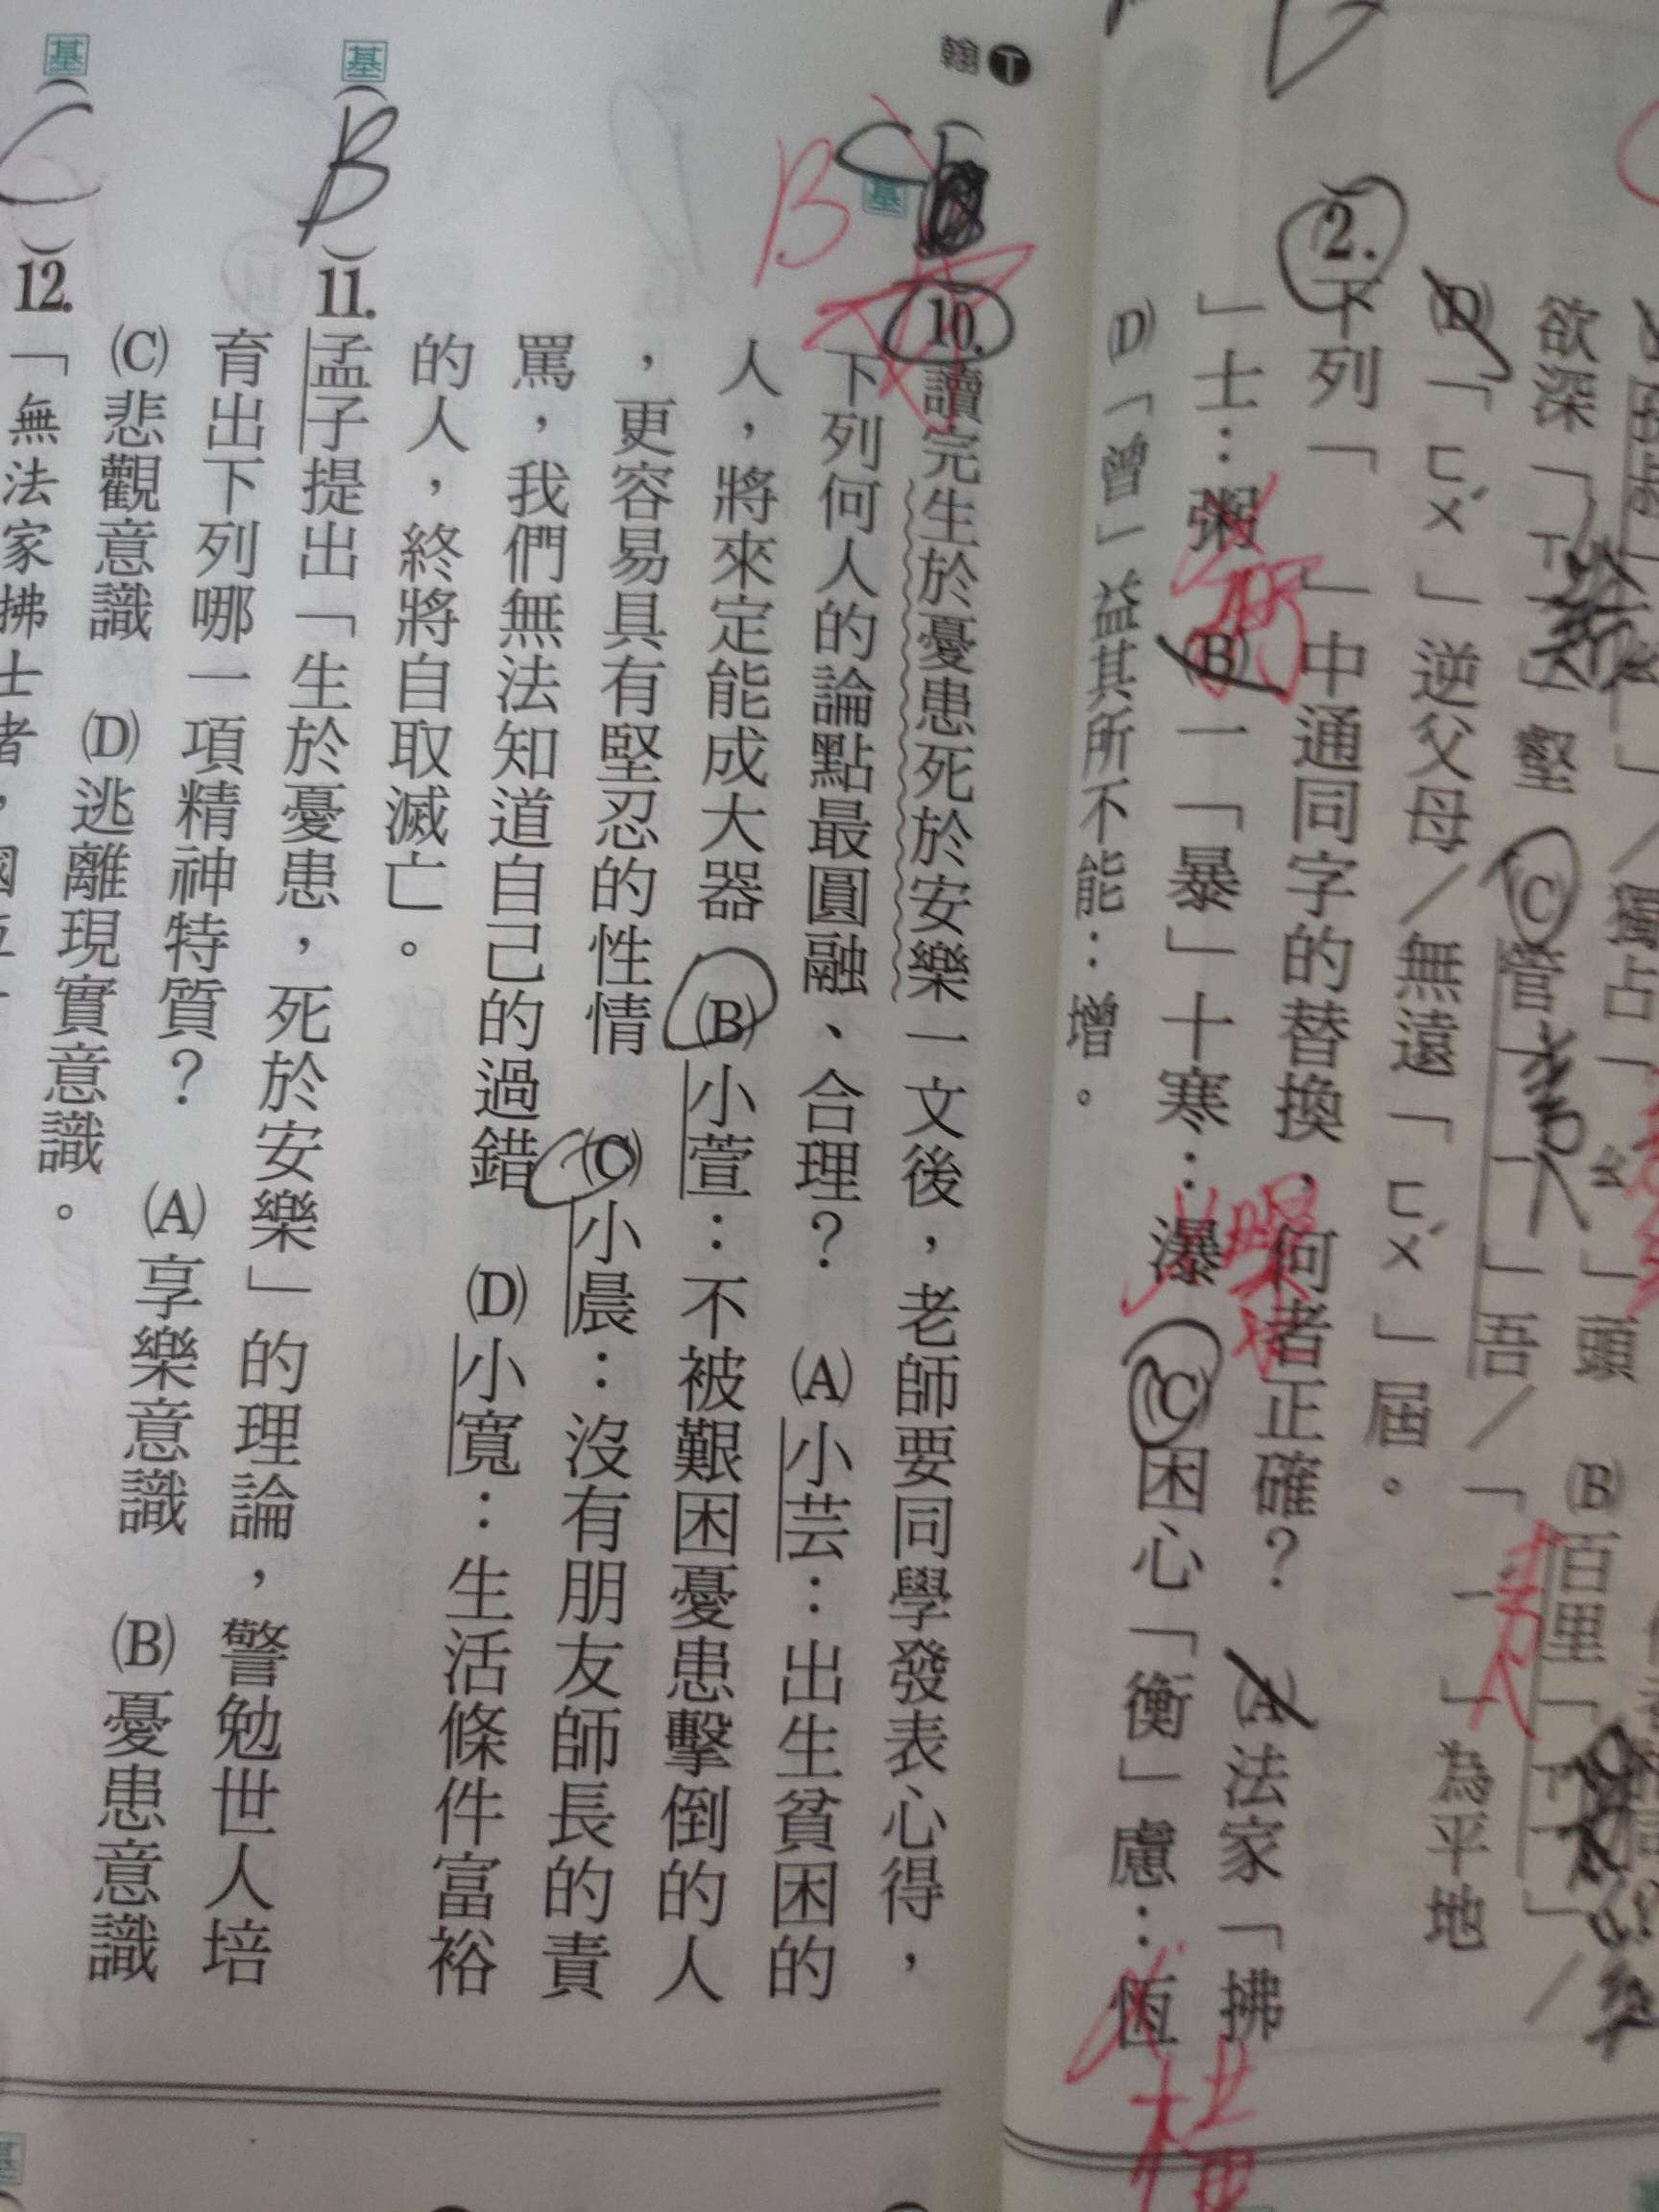 欲深「
」壑
(C)管
」吾/「
」為平地
(D)「ㄈㄨˊ」逆父母/無遠「ㄈㄨˊ」屆。
2.下列「 」中通同字的替換,何者正確? (A)法家「拂
」士:粥 (B)一「暴」十寒:瀑 (C)困心「衡」慮:恆
(D)「曾」益其所不能:增。
弼
曝
橫
翰
基
10.讀完生於憂患死於安樂一文後,老師要同學發表心得,
下列何人的論點最圓融、合理? (A)小芸:出生貧困的
人,將來定能成大器 (B)小萱:不被艱困憂患擊倒的人
,更容易具有堅忍的性情 (C)小晨:沒有朋友師長的責
罵,我們無法知道自己的過錯 (D)小寬:生活條件富裕
的人,終將自取滅亡。
B
基(B)11.孟子提出「生於憂患,死於安樂」的理論,警勉世人培
育出下列哪一項精神特質? (A)享樂意識 (B)憂患意識
(C)悲觀意識 (D)逃離現實意識。
基(C)12.「無法家拂士者,國